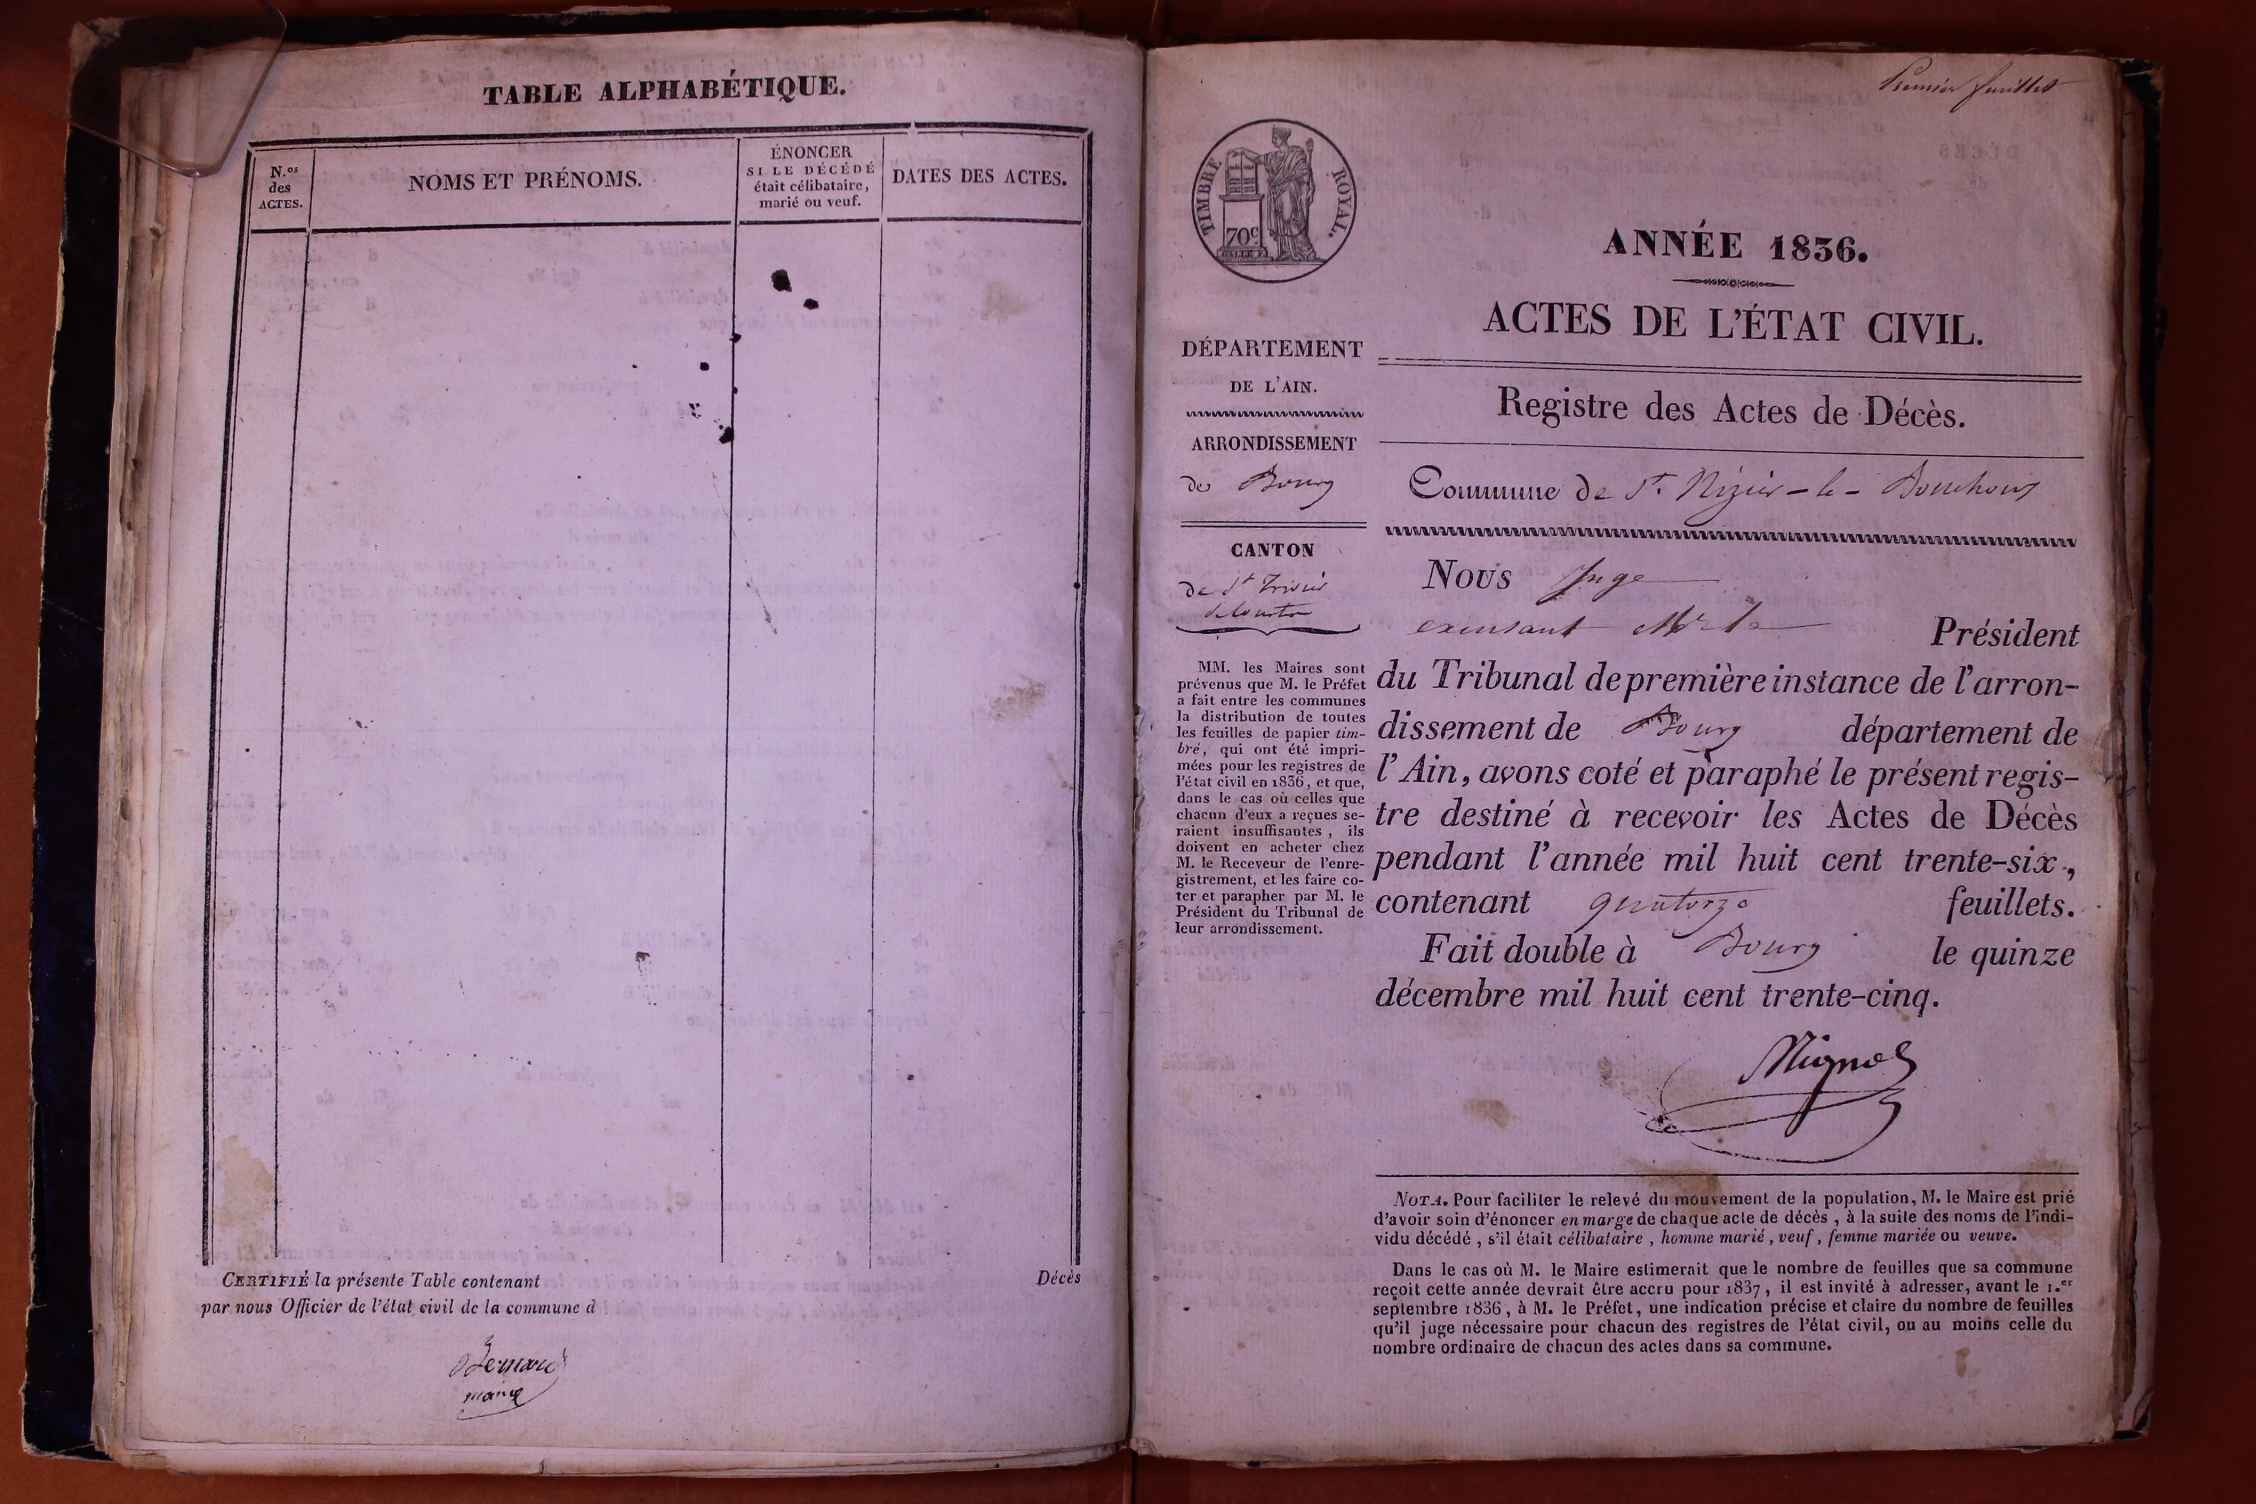 TABLE ALPHABÉTIQUE.
N.os
des
ACTES.
NOMS ET PRÉNOMS.
ÉNONCER
SI LE DÉCÉDÉ
était célibataire,
marié ou veuf.
DATES DES ACTES.
CERTIFIÉ la présente Table contenant Décès
par nous Officier de l'état civil de la commune d
Bernard
maire
Premier feuillet
TIMBRE ROYAL.
70c
ANNÉE 1836.
ACTES DE L'ÉTAT CIVIL.
DÉPARTEMENT
DE L'AIN.
ARRONDISSEMENT
de Bourg
CANTON
de St Trivier
de Courtes
MM. les Maires sont
prévenus que M. le Préfet
a fait entre les communes
la distribution de toutes
les feuilles de papier tim-
bré, qui ont été impri-
mées pour les registres de
l'état civil en 1836, et que,
dans le cas où celles que
chacun d'eux a reçues se-
raient insuffisantes, ils
doivent en acheter chez
M. le Receveur de l'enre-
gistrement, et les faire co-
ter et parapher par M. le
Président du Tribunal de
leur arrondissement.
Registre des Actes de Décès.
Commune de St. Nizier-le-Bouchoux
NOUS Juge
excusant Mr le Président
du Tribunal de première instance de l'arron-
dissement de Bourg département de
l'Ain, avons coté et paraphé le présent regis-
tre destiné à recevoir les Actes de Décès
pendant l'année mil huit cent trente-six,
contenant quatorze feuillets.
Fait double à Bourg le quinze
décembre mil huit cent trente-cinq.
NOTA. Pour faciliter le relevé du mouvement de la population, M. le Maire est prié
d'avoir soin d'énoncer en marge de chaque acte de décès, à la suite des noms de l'indi-
vidu décédé, s'il était célibataire, homme marié, veuf, femme mariée ou veuve.
Dans le cas où M. le Maire estimerait que le nombre de feuilles que sa commune
reçoit cette année devrait être accru pour 1837, il est invité à adresser, avant le 1.er
septembre 1836, à M. le Préfet, une indication précise et claire du nombre de feuilles
qu'il juge nécessaire pour chacun des registres de l'état civil, ou au moins celle du
nombre ordinaire de chacun des actes dans sa commune.